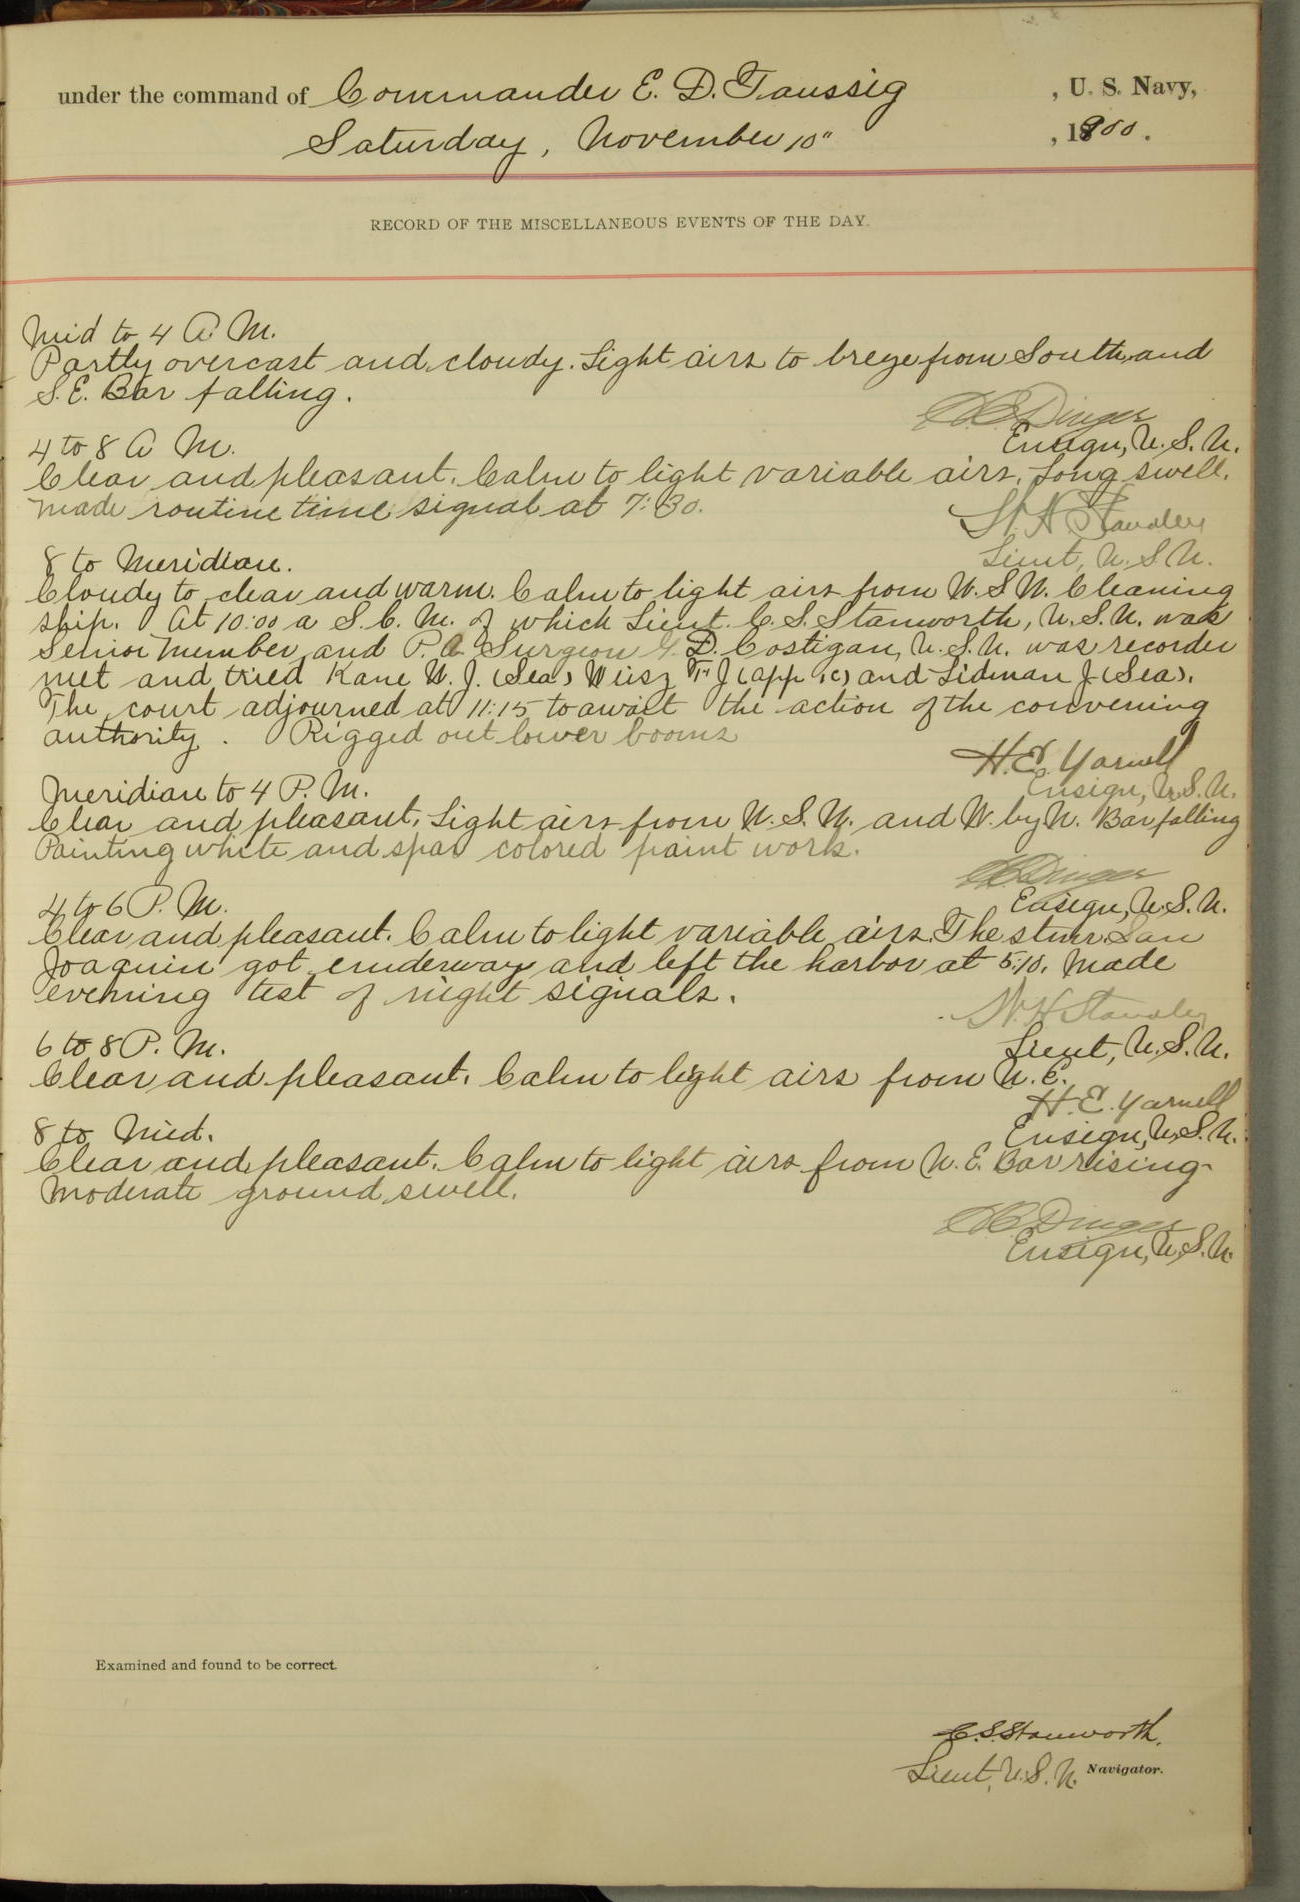 under the command of Commander E. D. Taussig , U. S. Navy,
Saturday, November 10" , 1900.
RECORD OF THE MISCELLANEOUS EVENTS OF THE DAY.
Mid to 4 A. M.
Partly overcast and cloudy. Light airs to breeze from South and
S. E. Bar falling.
Dinger
Ensign, U. S. N.
4 to 8 A M.
Clear and pleasant. Calm to light variable airs. Long swell.
Made routine time signal at 7:30.
W. H. Standley
Lieut, U. S. N.
8 to Meridian.
Cloudy to clear and warm. Calm to light airs from W. S W. Cleaning
ship. At 10:00 a S. C. M. of which Lieut. C. S. Stanworth, U. S. N. was
Senior Member and P. A Surgeon G. D. Costigan, U. S. N. was recorder
met and tried Kane W. J. (Sea) Wiisz F J (app 1c) and Lidman J (Sea).
The court adjourned at 11:15 to await the action of the convening
authority. Rigged out lower booms
H. E. Yarnell
Ensign, U. S. N.
Meridian to 4 P. M.
Clear and pleasant. Light airs from W. S. W. and W. by N. Bar falling
Painting white and spar colored paint work.
Dinger
Ensign, U. S. N.
4 to 6 P. M.
Clear and pleasant. Calm to light variable airs. The stmr. San
Joaquin got underway and left the harbor at 5:10. Made
evening test of night signals.
W. H Standley
Lieut, U. S. N.
6 to 8 P. M.
Clear and pleasant. Calm to light airs from N. E.
H. E. Yarnell
Ensign, U. S. N.
8 to Mid.
Clear and pleasant. Calm to light airs from N. E. Bar rising
Moderate ground swell.
Dinger
Ensign, U. S. N.
Examined and found to be correct.
C. S. Stanworth.
Lieut, U. S. N. Navigator.